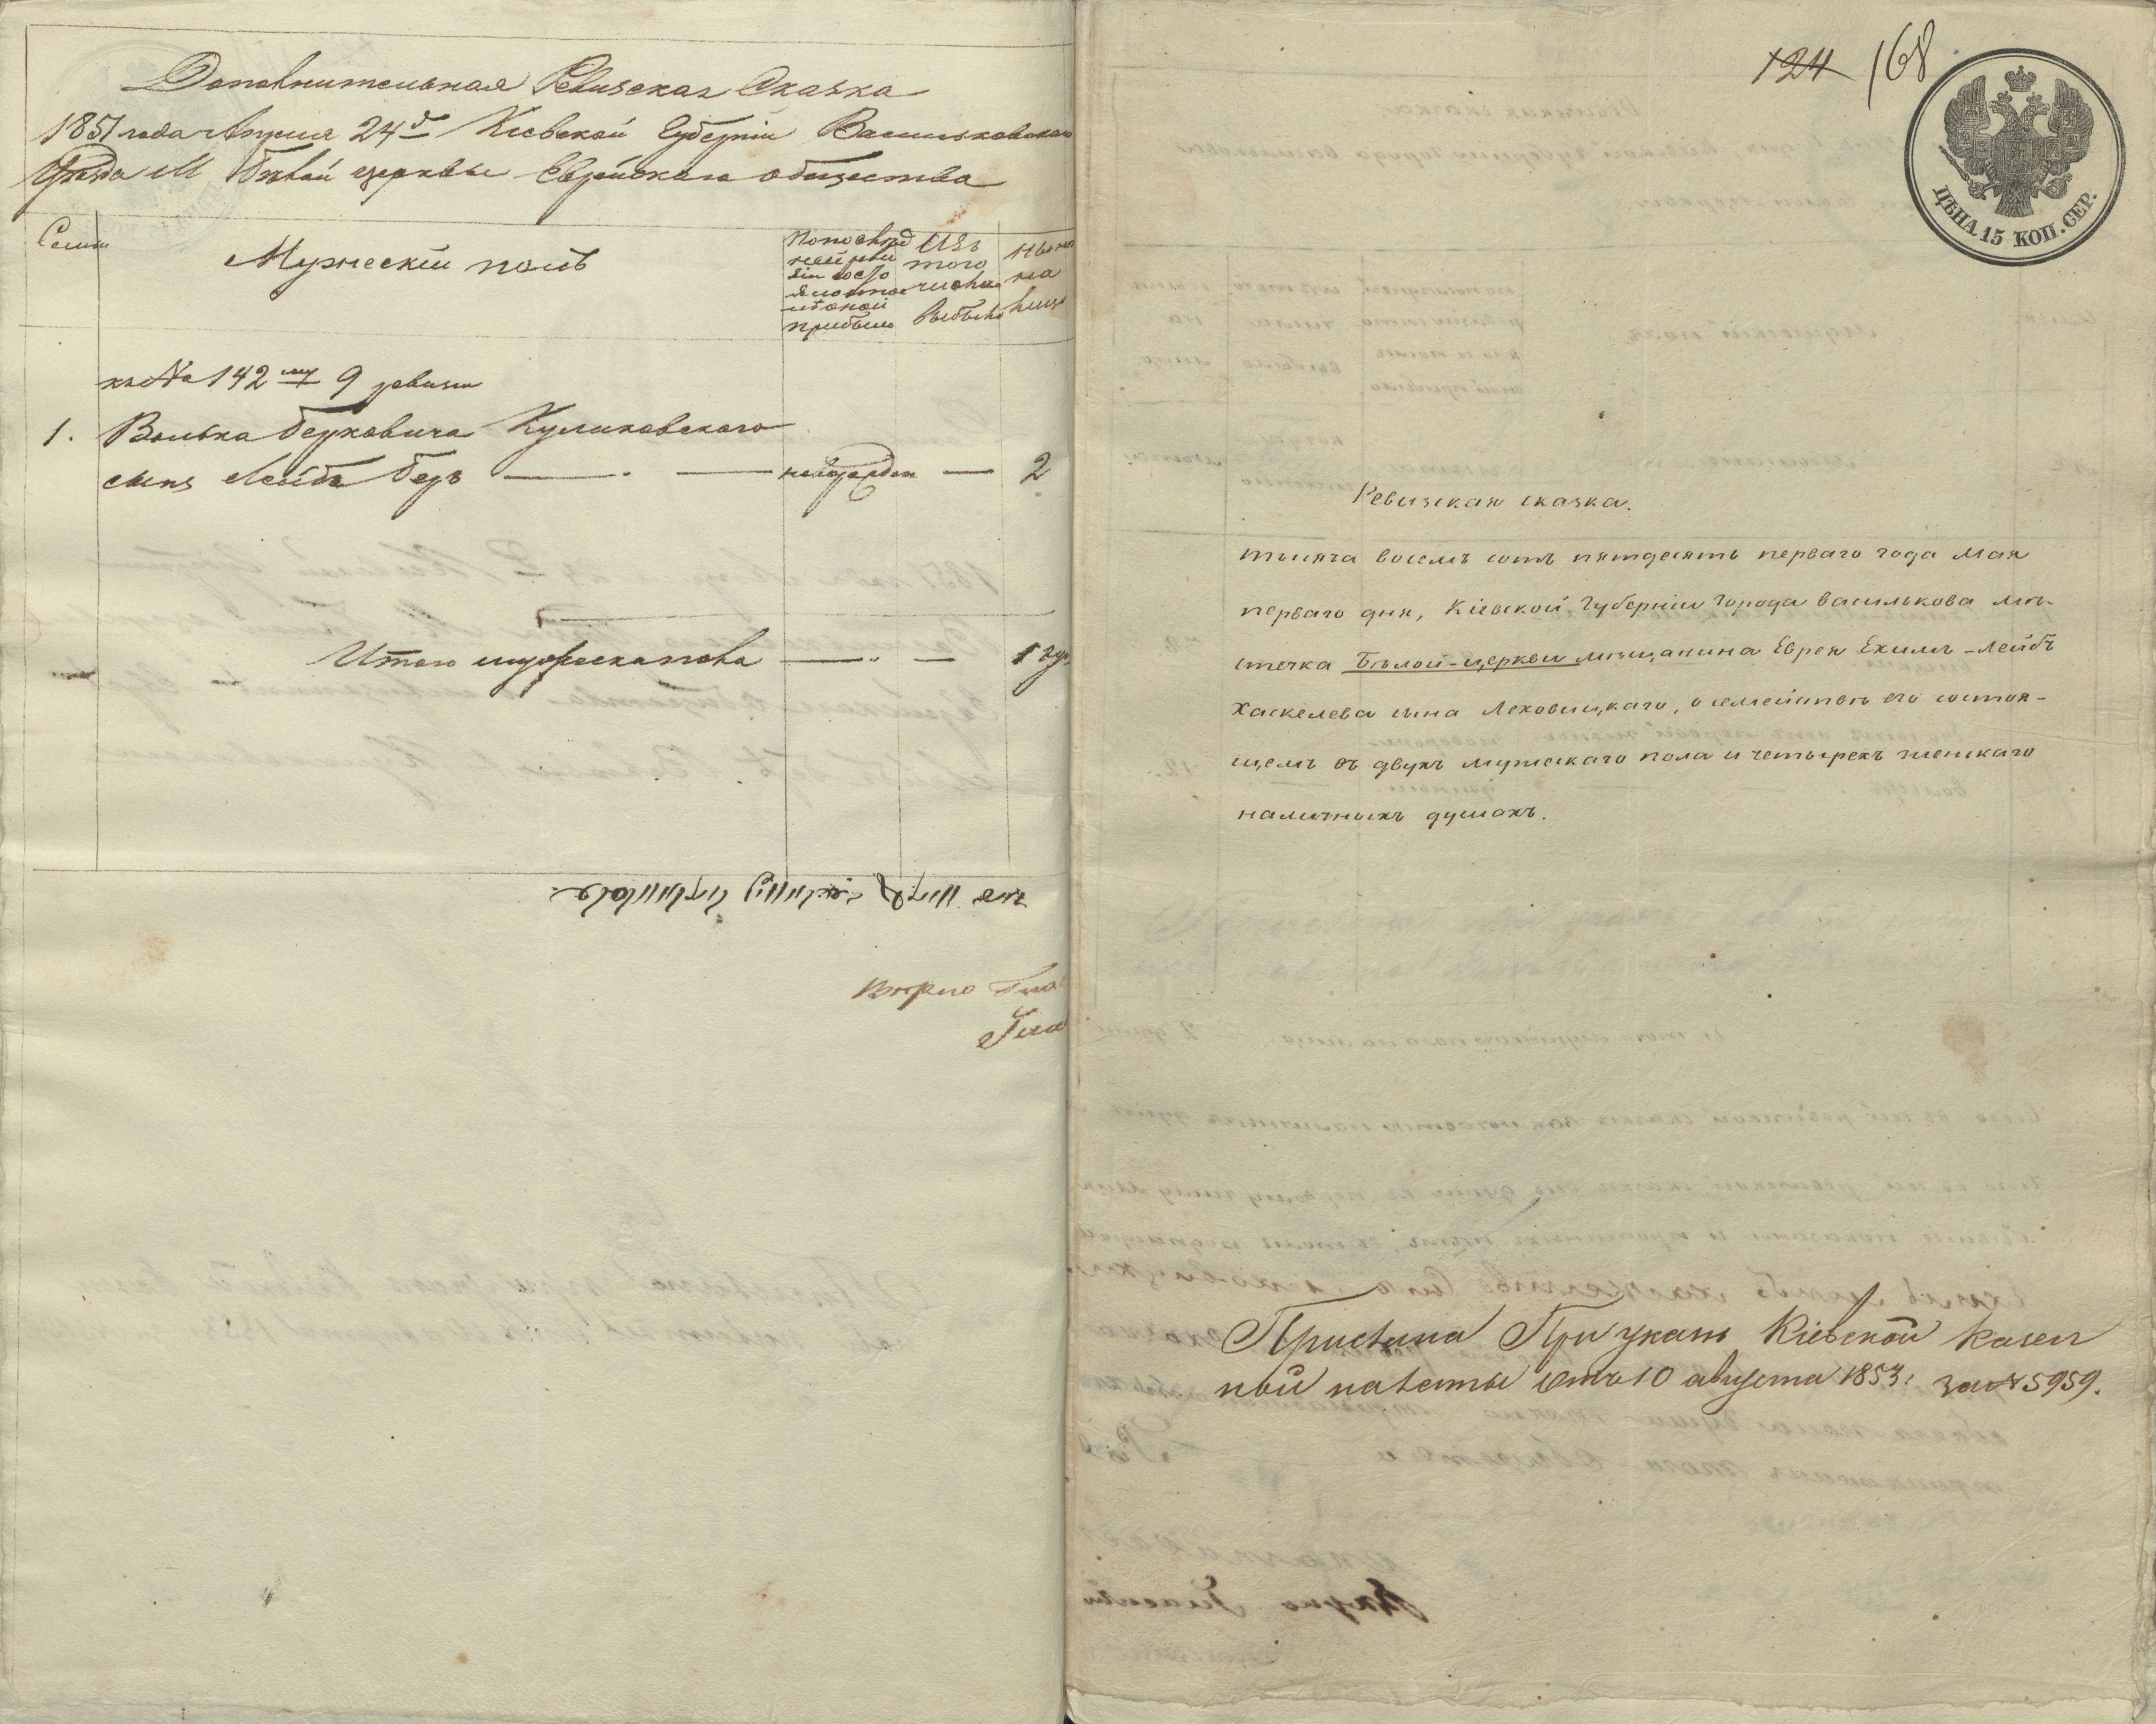 Дополнительная Ревизская Сказка
1851 года Апреля 24 д Кіевской Губерніи Васильковскаго
Уѣзда М Бѣлой церкви Еврейскаго общества
Семьи
Мужескій полъ
По послѣд
ней реви
зіи состо
яло и по
оной
прибыло
Изъ
того
числа
выбыло
Нынѣ
на
лицо
къ № 142 му 9 ревизіи
1. Волька Берковича Куликовскаго
сынъ Лейба Беръ — — — 2
Итого мужеска пола — — 1 душ
Вѣрно Гла
Гла
124 168
ЦѢНА 15 КОП. СЕР.
Ревизская сказка.
тысяча восемъ сотъ пятдесятъ перваго года Мая
перваго дня, Кіевской Губерніи города Василькова мѣ-
стечка Бѣлой-церкви мѣщанина Еврея Ехилъ-Лейбъ
Хаскелева сына Леховицкаго, о семействѣ его состоя-
щемъ въ двухъ мужескаго пола и четырехъ женскаго
наличныхъ душахъ.
Прислана При указѣ Кіевской Казен
ной палаты отъ 10 августа 1853 г за № 5959.